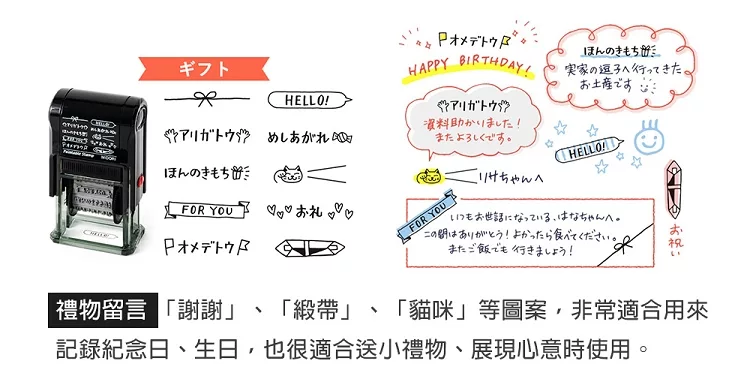 ギフト
HELLO!
アリガトウ
めしあがれ
ほんのきもち
FOR YOU
お礼
オメデトウ
オメデトウ
HAPPY BIRTHDAY!
ほんのきもち
実家の逗子へ行ってきた
お土産です
アリガトウ
資料助かりました!
またよろしくです。
HELLO!
リサちゃんへ
FOR YOU
いつもお世話になっている、はなちゃんへ。
この間はありがとう!よかったら食べてください。
またご飯でも行きましょう!
お祝い
禮物留言「謝謝」、「緞帶」、「貓咪」等圖案,非常適合用來
記錄紀念日、生日,也很適合送小禮物、展現心意時使用。